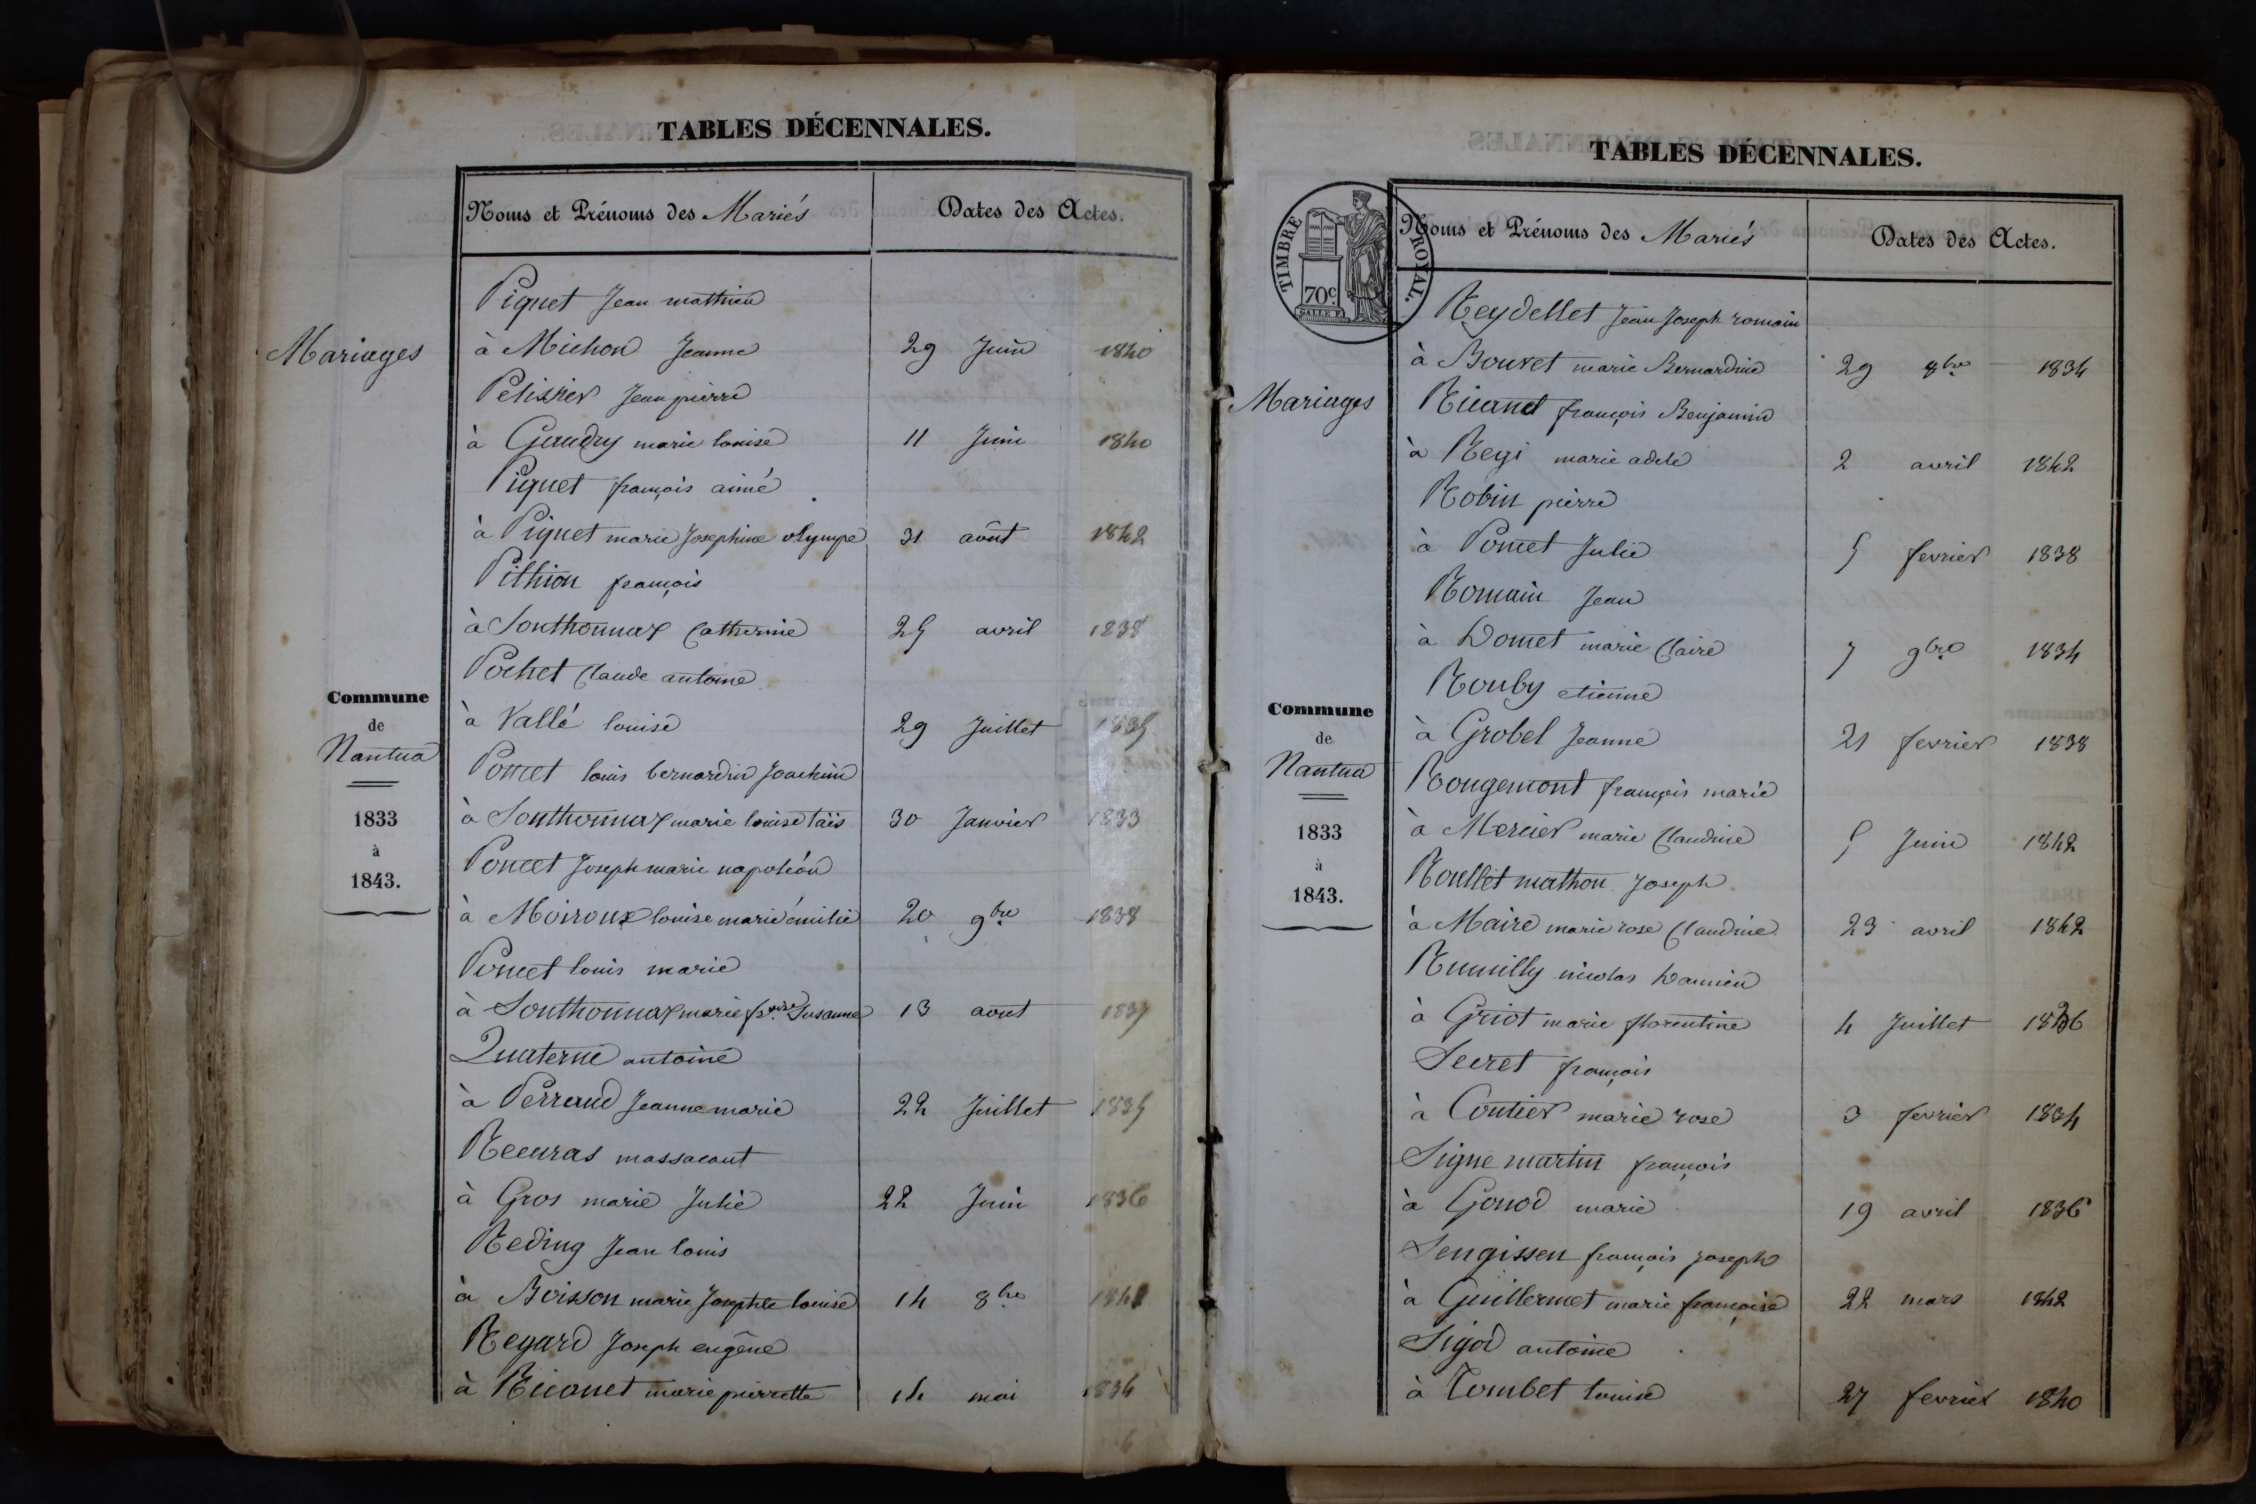 TABLES DÉCENNALES.
Noms et Prénoms des Mariés Dates des Actes.
Mariages
Commune
de
Nantua
1833
à
1843.
Piquet Jean mathieu
à Michon Jeanne 29 Juin 1840
Pelissier Jean pierre
à Gaudry marie louise 11 Juin 1840
Piquet françois aimé
à Piquet marie Josephine olympe 31 août 1842
Pithion françois
à Sonthonnax Catherine 25 avril 1838
Pochet Claude antoine
à Vallé louise 29 Juillet 1835
Poncet louis bernardin Joachim
à Sonthonnax marie louise taïs 30 Janvier 1833
Poncet Joseph marie napoléon
à Moiroux louise marie émilie 20 9bre 1838
Poncet louis marie
à Sonthonnax marie fse Susanne 13 aout 1837
Quaterne antoine
à Perraud Jeanne marie 22 Juillet 1835
Recuras massacaut
à Gros marie Julie 22 Juin 1836
Reding Jean louis
à Boisson marie Josephte louise 14 8bre 1841
Regard Joseph eugêne
à Ricanet marie pierrette 14 mai 1834
TABLES DÉCENNALES.
TIMBRE ROYAL.
70c.
Noms et Prénoms des Mariés Dates des Actes.
Mariages
Commune
de
Nantua
1833
à
1843.
Reydellet Jean Joseph romain
à Bouvet marie Bernardine 29 8bre 1834
Ricanet françois Benjamin
à Regi marie adele 2 avril 1842
Robin pierre
à Poncet Julie 5 fevrier 1838
Romain Jean
à Domet marie Claire 7 9bre 1834
Rouby etienne
à Grobel Jeanne 21 fevrier 1838
Rougemont françois marie
à Mercier marie Claudine 5 Juin 1842
Roullet mathon Joseph
à Maire marie rose Claudine 23 avril 1842
Rumilly nicolas Damien
à Griot marie florentine 4 Juillet 1836
Secret françois
à Coutier marie rose 3 fevrier 1834
Signe martin françois
à Gonod marie 19 avril 1836
Sengissen françois Joseph
à Guillermet marie françoise 22 mars 1842
Sigod antoine
à Tombet louise 27 fevrier 1840